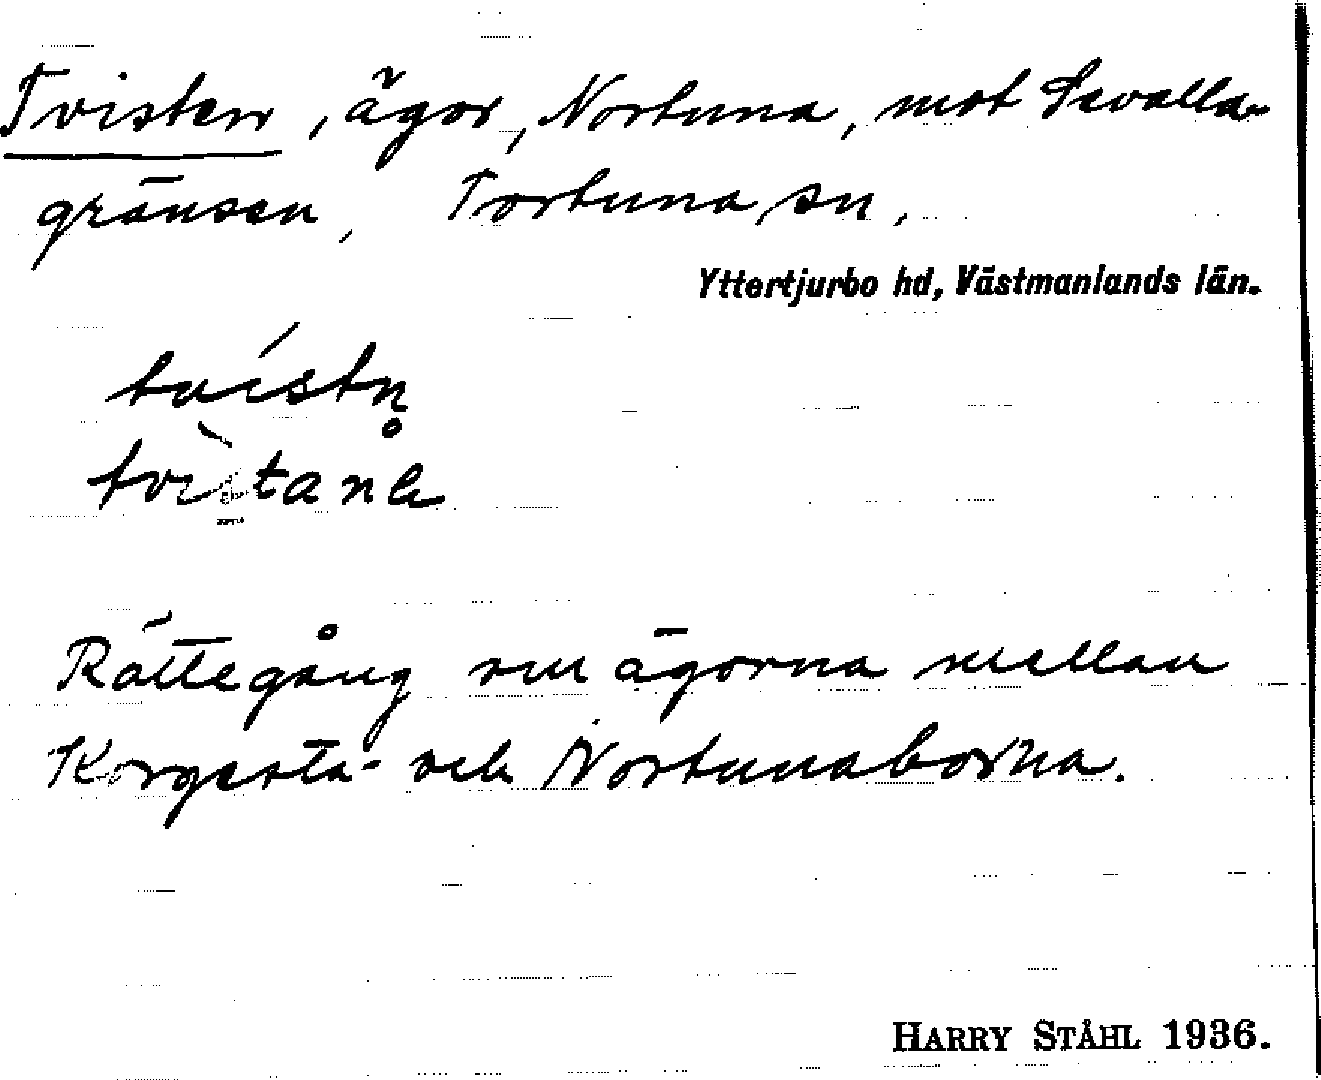 Tvisten, ägor, Nortuna, mot Sevalla-
gränsen, Tortuna sn.
Yttertjurbo hd, Västmanlands län.
tvístn̥
tvìstanɐ
Rättegång om ägorna mellan
Korgesta- och Nortunaborna.
HARRY STÅHL 1936.